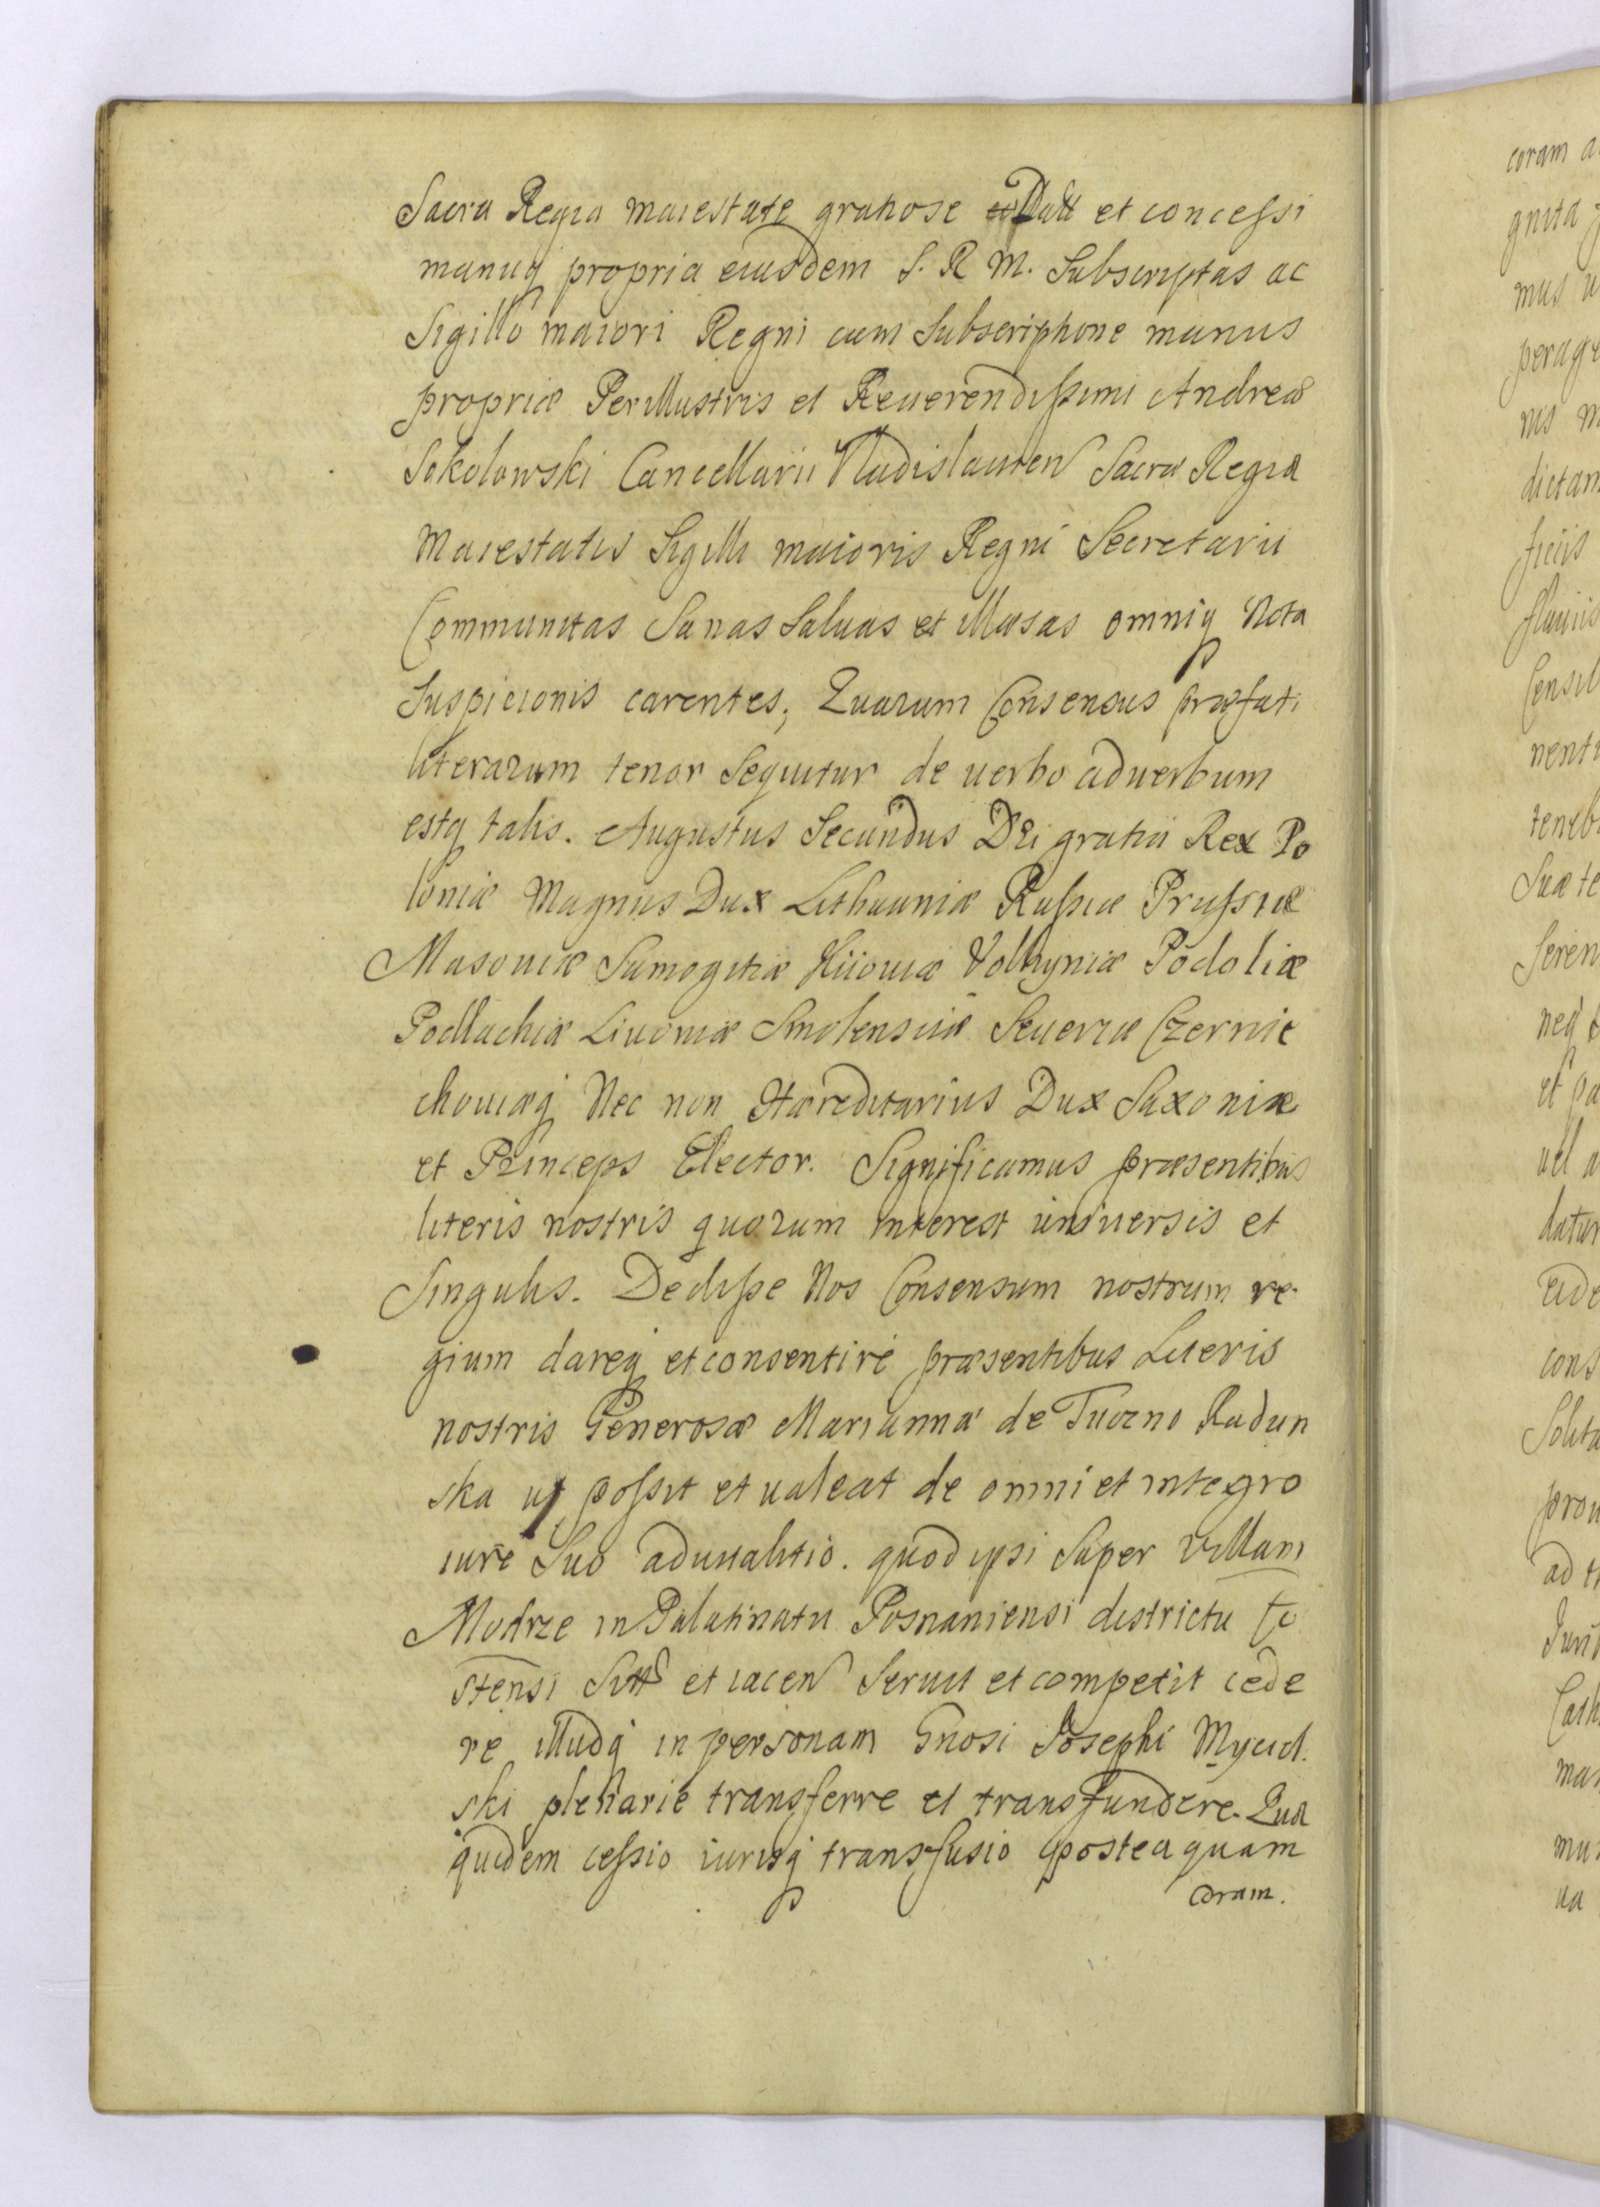 Sacra Regia maiestate gratiose Datt et concessi
manuq propria eiusdem S. R M. Subscriptas ac
Sigillo maiori Regni cum Subscriptione manus
propriæ Perillustris et Reuerendissimi Andreæ
Sokolowski Cancellarii Vladislauien Sacræ Regia
Maiestatis Sigilli maioris Regni Secretarii
Communitas Sanas Saluas et illæsas omniq Nota
Suspicionis carentes; Quarum Consensus præfati
literarum tenor Sequitur de uerbo aduerbum
estq talis. Augustus Secundus Dei gratia Rex Po
loniæ Magnus Dux Lithuaniæ Russiæ Prussiæ
Masouiæ Samogitiæ Kiiouiæ Volhyniæ Podoliæ
Podlachiæ Liuoniæ Smolensciæ Seueriæ Czernie
chouiæq Nec non Hæreditarius Dux Saxoniæ
et Princeps Elector. Significamus præsentibus
literis nostris quorum interest uniuersis et
Singulis. Dedisse Nos Consensum nostrum re-
gium dareq et consentire præsentibus Literis
nostris Generosæ Marianna de Tworzno Radun
ska ut possit et ualeat de omni et integro
iure Suo aduitalitio. quod ipsi Super Villam
Modrze in Palatinatu Posnaniensi districtu Co
stensi Sitt et iacen Seruit et competit cede
re illudq in personam Gnosi Josephi Myciel.
ski plenarie transferre et transfundere. Qua
quidem cessio iurisq transfusio posteaquam
coram.
coram a
gnita
mus u
perage
nis m
dictam
ficiis
fluuiis
nenti
teneb
Suæ te
Seren
neq
et pa
uel a
datur
eide
cons
Solita
prou
ad
mus
ua